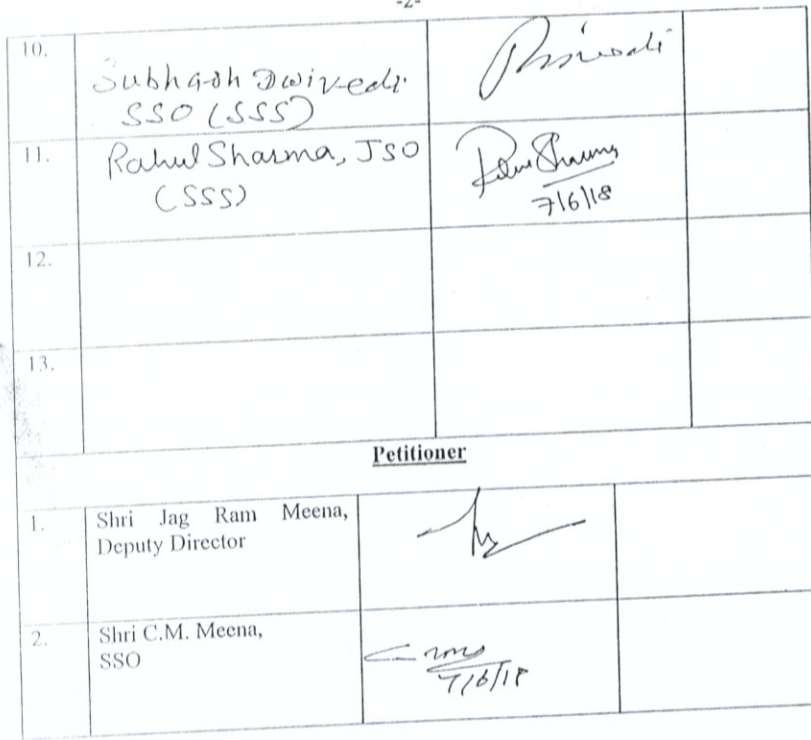 -2-
10.
Subhash Dwivedi
SSO (SSS)
11.
Rahul Sharma, JSO
(SSS)
7/6/18
12.
13.
Petitioner
1.
Shri Jag Ram Meena,
Deputy Director
2.
Shri C.M. Meena,
SSO
7/6/18